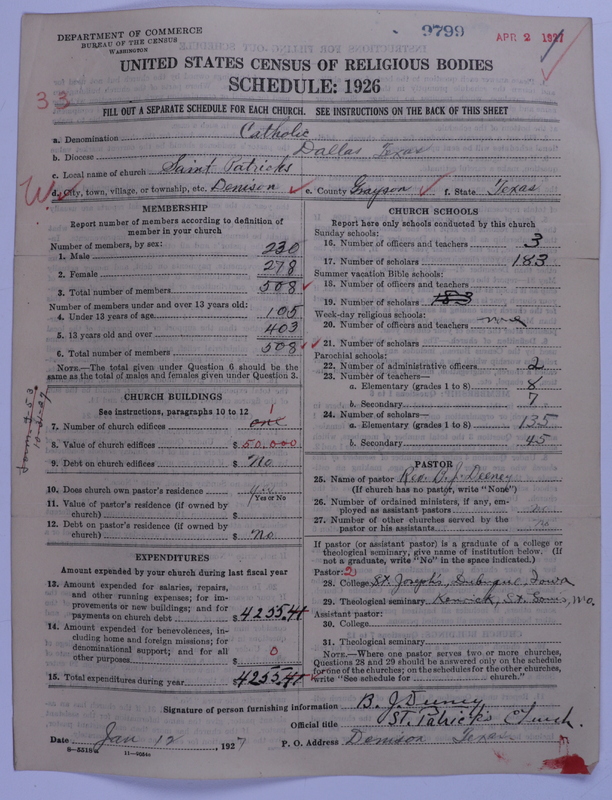 DEPARTMENT OF COMMERCE
BUREAU OF THE CENSUS
WASHINGTON
9799
APR 2 1927
UNITED STATES CENSUS OF RELIGIOUS BODIES
SCHEDULE: 1926
33
FILL OUT A SEPARATE SCHEDULE FOR EACH CHURCH. SEE INSTRUCTIONS ON THE BACK OF THIS SHEET
a. Denomination Catholic
b. Diocese Dallas Texas
c. Local name of church Saint Patricks
d. City, town, village, or township, etc. Denison e. County Grayson f. State Texas
MEMBERSHIP
Report number of members according to definition of
member in your church
Number of members, by sex:
1. Male 230
2. Female 278
3. Total number of members 508
Number of members under and over 13 years old:
4. Under 13 years of age 105
5. 13 years old and over 403
6. Total number of members 508
NOTE.—The total given under Question 6 should be the
same as the total of males and females given under Question 3.
CHURCH BUILDINGS
See instructions, paragraphs 10 to 12
7. Number of church edifices one 1
8. Value of church edifices $ 50,000
9. Debt on church edifices $ No
10. Does church own pastor's residence yes
Yes or No
11. Value of pastor's residence (if owned by
church) $
12. Debt on pastor's residence (if owned by
church) $ No
EXPENDITURES
Amount expended by your church during last fiscal year
13. Amount expended for salaries, repairs,
and other running expenses; for im-
provements or new buildings; and for
payments on church debt $ 4255.41
14. Amount expended for benevolences, in-
cluding home and foreign missions; for
denominational support; and for all
other purposes $ 0
15. Total expenditures during year $ 4255.41
CHURCH SCHOOLS
Report here only schools conducted by this church
Sunday schools:
16. Number of officers and teachers 3
17. Number of scholars 183
Summer vacation Bible schools:
18. Number of officers and teachers
19. Number of scholars 183
Week-day religious schools:
20. Number of officers and teachers
21. Number of scholars
Parochial schools:
22. Number of administrative officers 2
23. Number of teachers—
a. Elementary (grades 1 to 8) 8
b. Secondary 7
24. Number of scholars—
a. Elementary (grades 1 to 8) 135
b. Secondary 45
PASTOR
25. Name of pastor Rev. B. J. Deeney
(If church has no pastor, write "None")
26. Number of ordained ministers, if any, em-
ployed as assistant pastors no
27. Number of other churches served by the
pastor or his assistants no
If pastor (or assistant pastor) is a graduate of a college or
theological seminary, give name of institution below. (If
not a graduate, write "No" in the space indicated.)
Pastor: 2
28. College St. Josephs, Dubuque, Iowa
29. Theological seminary Kenrick, St. Louis, Mo.
Assistant pastor:
30. College
31. Theological seminary
NOTE.—Where one pastor serves two or more churches,
Questions 28 and 29 should be answered only on the schedule
for one of the churches; on the schedules for the other churches,
write "See schedule for church."
Signature of person furnishing information B. J. Deeney
Official title St. Patrick's Church.
Date Jan 12 1927 P. O. Address Denison Texas
8—5518a 11—9054a